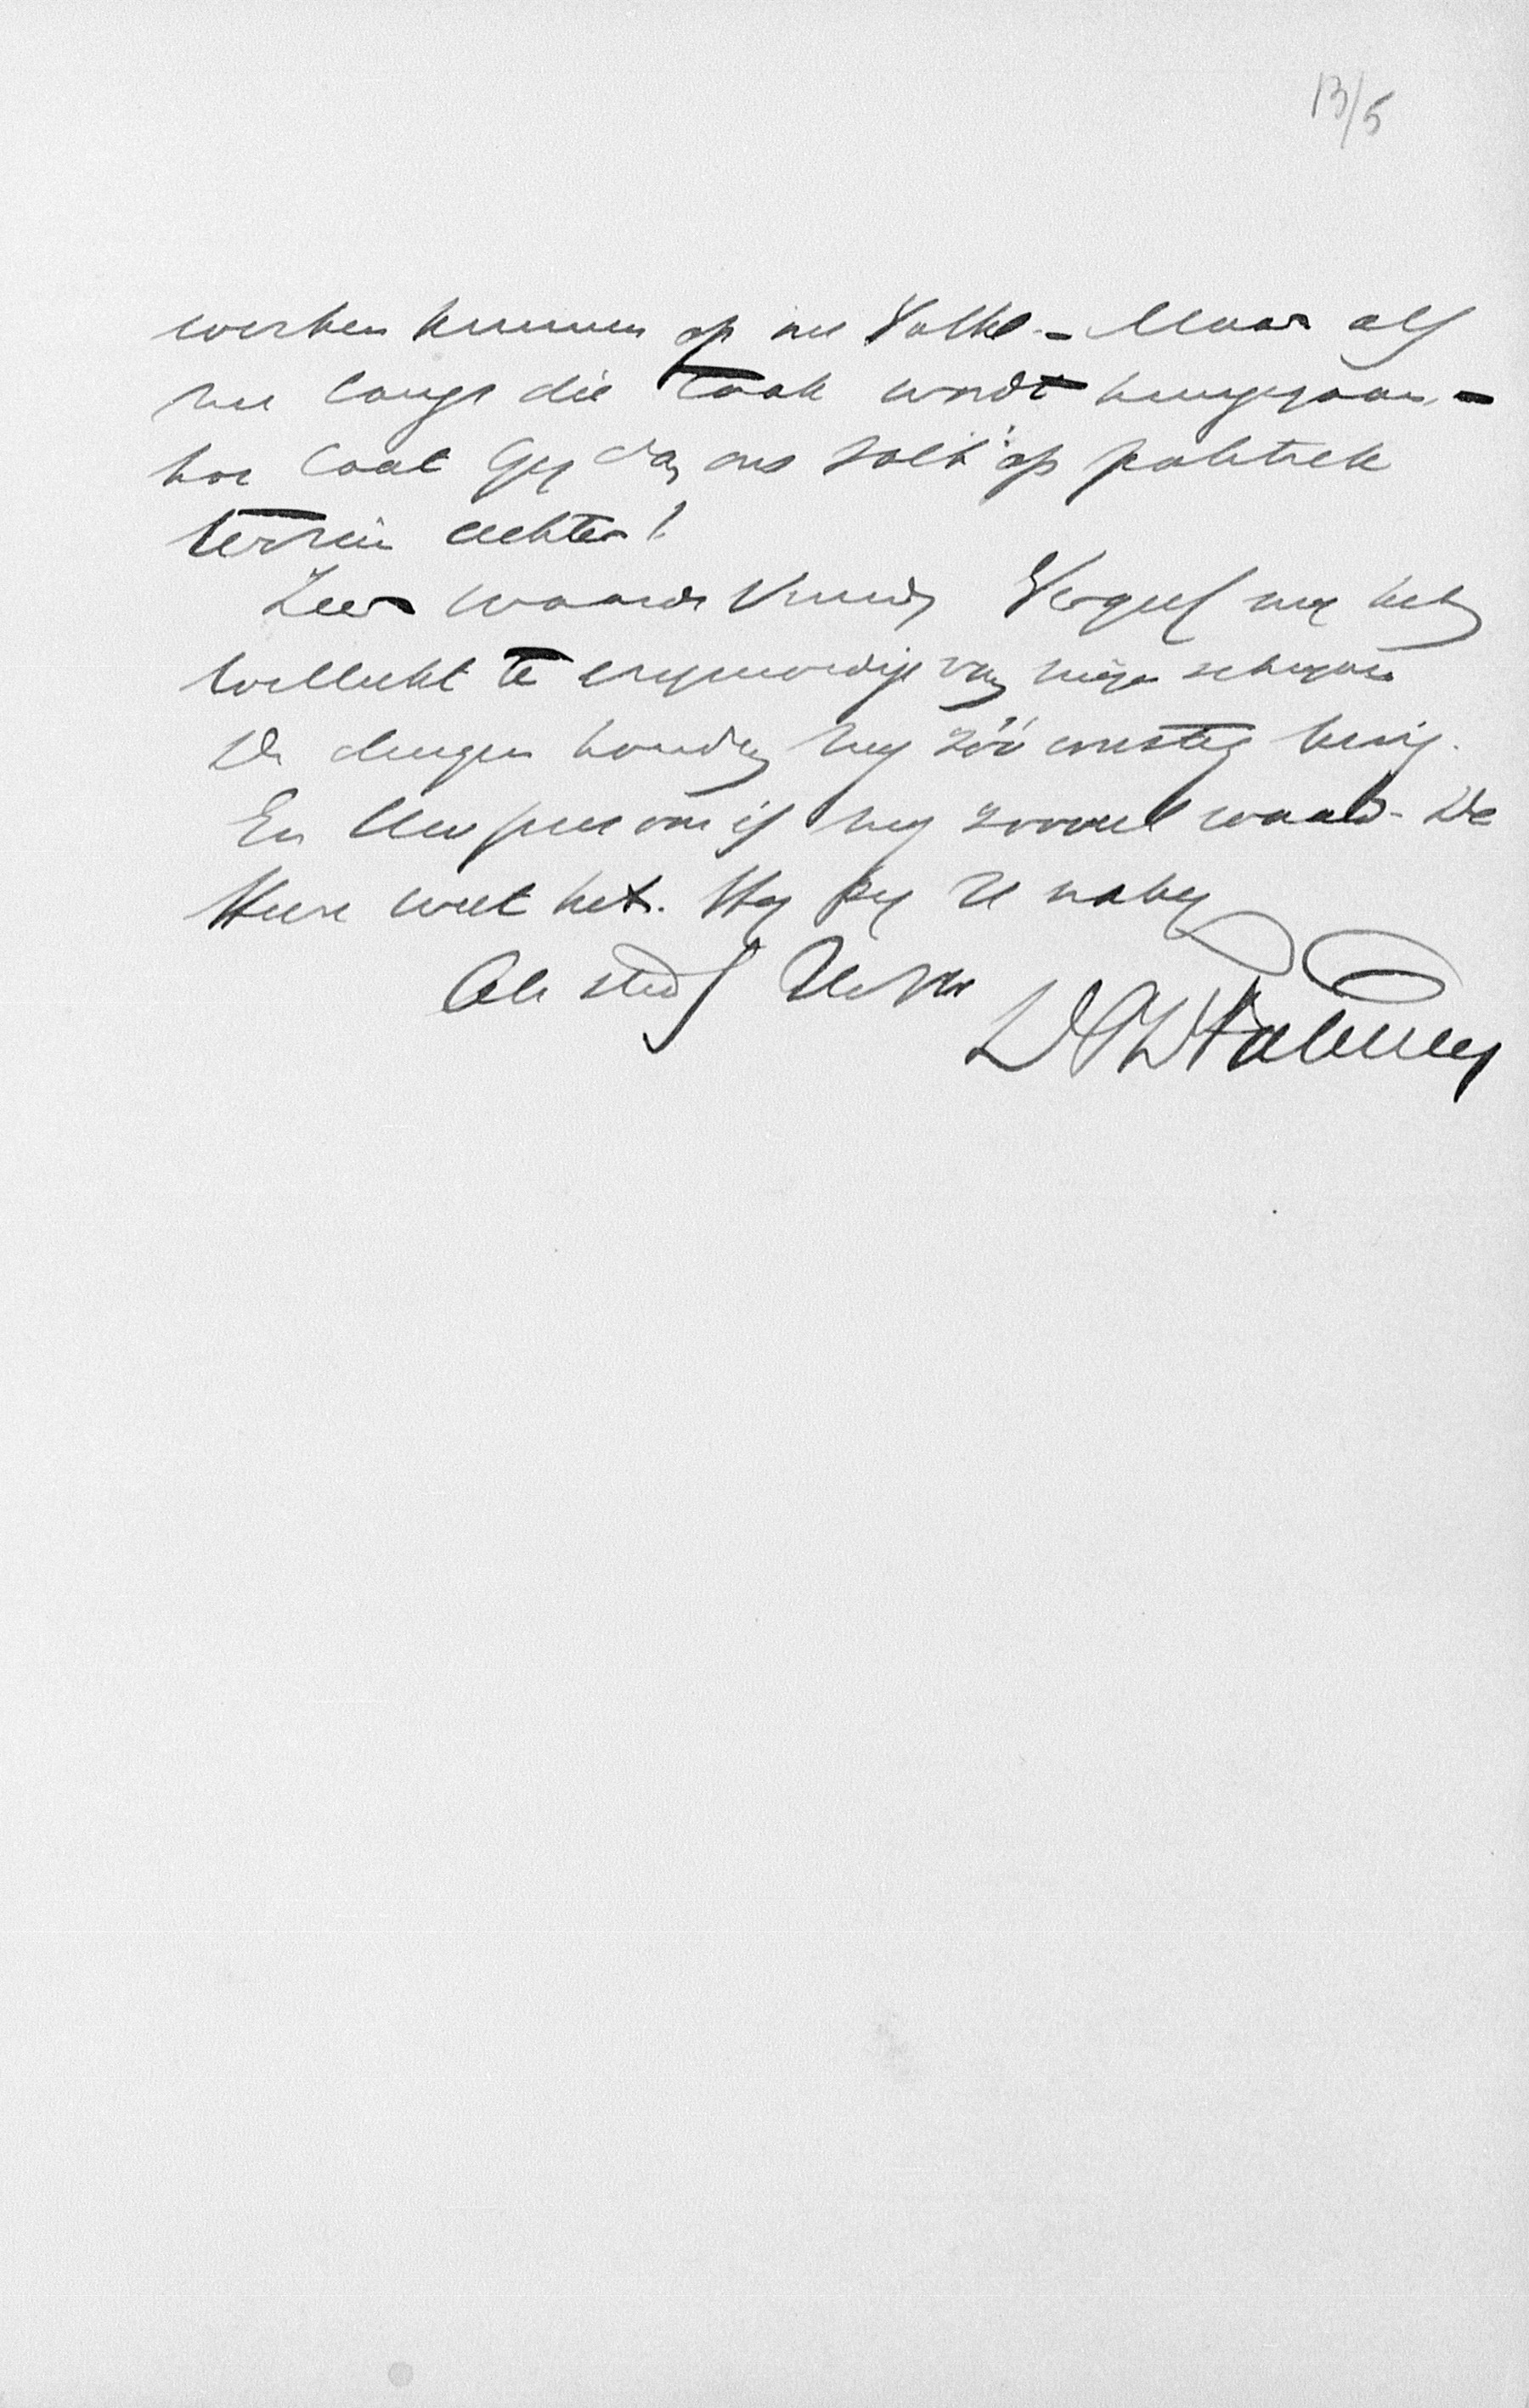 13/5
werken kunnen op ons Volk. - Maar als
nu langs die taak wordt heengegaan, -
hoe laat Gij dan ons Volk op politiek
terrein achter!
Zeer waarde Vriend, Vergeef mij het
wellicht te vrijmoedige van mijn schrijven
De dingen houden mij zóó ernstig bezig.
En Uw persoon is mij zooveel waard. De
Heere weet het. Hij zij U nabij
Als steeds Uw